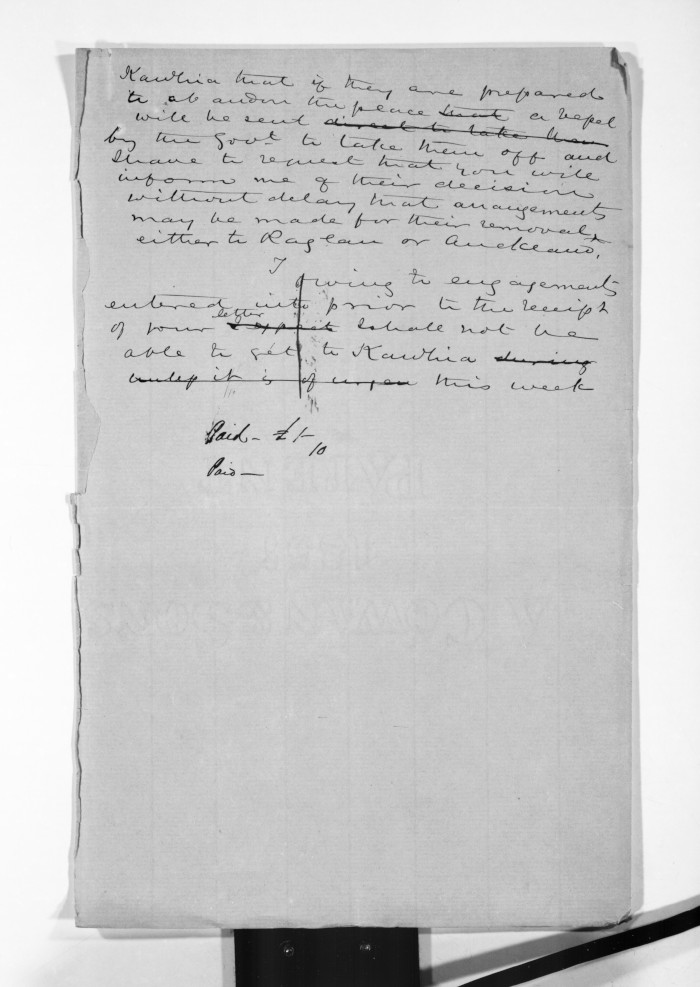 Kawhia that if they are prepared
to abandon the place that a vessel
will be sent direct to take them
by the Govt to take them off and
I have to request that you will
inform me of their decision
without delay that arrangements
may be made for their removal
either to Raglan or Auckland.
I
owing to engagements
entered into prior to the receipt
of your letter I shall not be
able to get to Kawhia during
unless it is of urgen this week
Paid - £1-
10
Paid -